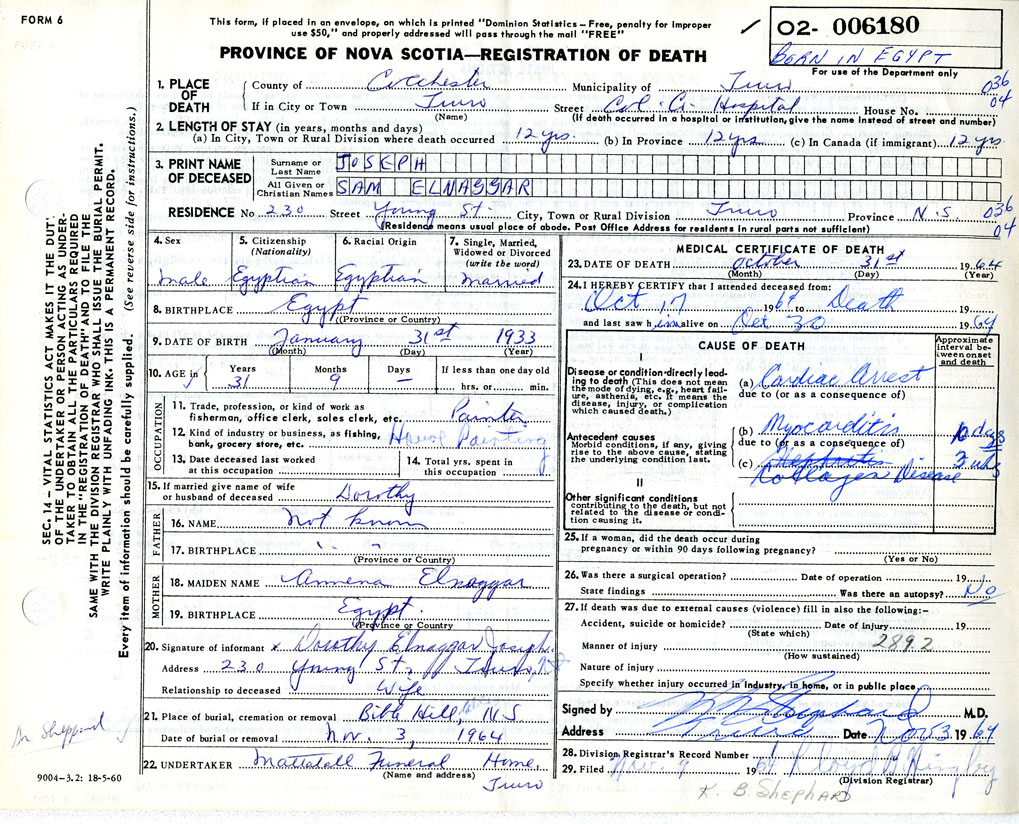 FORM 6
This form, if placed in an envelope, on which is printed "Dominion Statistics – Free, penalty for improper
use $50," and properly addressed will pass through the mail "FREE"
02- 006180
BORN IN EGYPT
For use of the Department only
PROVINCE OF NOVA SCOTIA—REGISTRATION OF DEATH
1. PLACE OF DEATH
County of Colchester Municipality of Truro 036
If in City or Town Truro Street Col. Co. Hospital House No. 04
(Name) (If death occurred in a hospital or institution, give the name instead of street and number)
2. LENGTH OF STAY (in years, months and days)
(a) In City, Town or Rural Division where death occurred 12 yrs. (b) In Province 12 yrs. (c) In Canada (if immigrant) 12 yrs
3. PRINT NAME OF DECEASED
Surname or Last Name JOSEPH
All Given or Christian Names SAM ELNAGGAR
RESIDENCE No 230 Street Young St. City, Town or Rural Division Truro Province N.S 036
04
(Residence means usual place of abode. Post Office Address for residents in rural parts not sufficient)
4. Sex
male
5. Citizenship
(Nationality)
Egyptian
6. Racial Origin
Egyptian
7. Single, Married,
Widowed or Divorced
(write the word)
Married
8. BIRTHPLACE Egypt
(Province or Country)
9. DATE OF BIRTH January 31st 1933
(Month) (Day) (Year)
10. AGE in
Years Months Days If less than one day old
31 9 – hrs. or min.
OCCUPATION
11. Trade, profession, or kind of work as
fisherman, office clerk, sales clerk, etc. Painter
12. Kind of industry or business, as fishing,
bank, grocery store, etc. House Painting
13. Date deceased last worked
at this occupation
14. Total yrs. spent in
this occupation
15. If married give name of wife
or husband of deceased Dorothy
FATHER
16. NAME Not known
17. BIRTHPLACE " "
(Province or Country)
MOTHER
18. MAIDEN NAME Ammena Elnaggar
19. BIRTHPLACE Egypt.
(Province or Country)
20. Signature of informant x Dorothy Elnaggar Joseph
Address 230 Young St., Truro, N.S
Relationship to deceased Wife
21. Place of burial, cremation or removal Bible Hill, N.S
Date of burial or removal Nov. 3, 1964
22. UNDERTAKER Mattatall Funeral Home,
(Name and address)
Truro
MEDICAL CERTIFICATE OF DEATH
23. DATE OF DEATH October 31st 1964
(Month) (Day) (Year)
24. I HEREBY CERTIFY that I attended deceased from:
Oct 17 1964 to Death
and last saw him alive on Oct 30 1964
CAUSE OF DEATH
Approximate
interval be-
tween onset
and death
I
Disease or condition directly lead-
ing to death (This does not mean
the mode of dying, e.g., heart fail-
ure, asthenia, etc. It means the
disease, injury, or complication
which caused death.)
(a) Cardiac Arrest
due to (or as a consequence of)
Antecedent causes
Morbid conditions, if any, giving
rise to the above cause, stating
the underlying condition last.
(b) Myocarditis 10 days
due to (or as a consequence of)
(c) Nephritis 3 wks
Collagen Disease
II
Other significant conditions
contributing to the death, but not
related to the disease or condi-
tion causing it.
25. If a woman, did the death occur during
pregnancy or within 90 days following pregnancy?
(Yes or No)
26. Was there a surgical operation? Date of operation 19
State findings Was there an autopsy? No
27. If death was due to external causes (violence) fill in also the following:–
Accident, suicide or homicide? Date of injury 19
(State which)
Manner of injury 2892
(How sustained)
Nature of injury
Specify whether injury occurred in Industry, in home, or in public place
Signed by K B Shephard M.D.
Address Truro Date Nov 3 1964
28. Division Registrar's Record Number
29. Filed Nov. 9 1964
(Division Registrar)
K. B. SHEPHARD
SEC. 14 – VITAL STATISTICS ACT MAKES IT THE DUTY
OF THE UNDERTAKER OR PERSON ACTING AS UNDER-
TAKER TO OBTAIN ALL THE PARTICULARS REQUIRED
IN THE "REGISTRATION OF DEATH" AND TO FILE THE
SAME WITH THE DIVISION REGISTRAR WHO SHALL ISSUE THE BURIAL PERMIT.
WRITE PLAINLY WITH UNFADING INK. THIS IS A PERMANENT RECORD.
Every item of information should be carefully supplied. (See reverse side for instructions.)
Sheppard
9004–3.2: 18-5-60